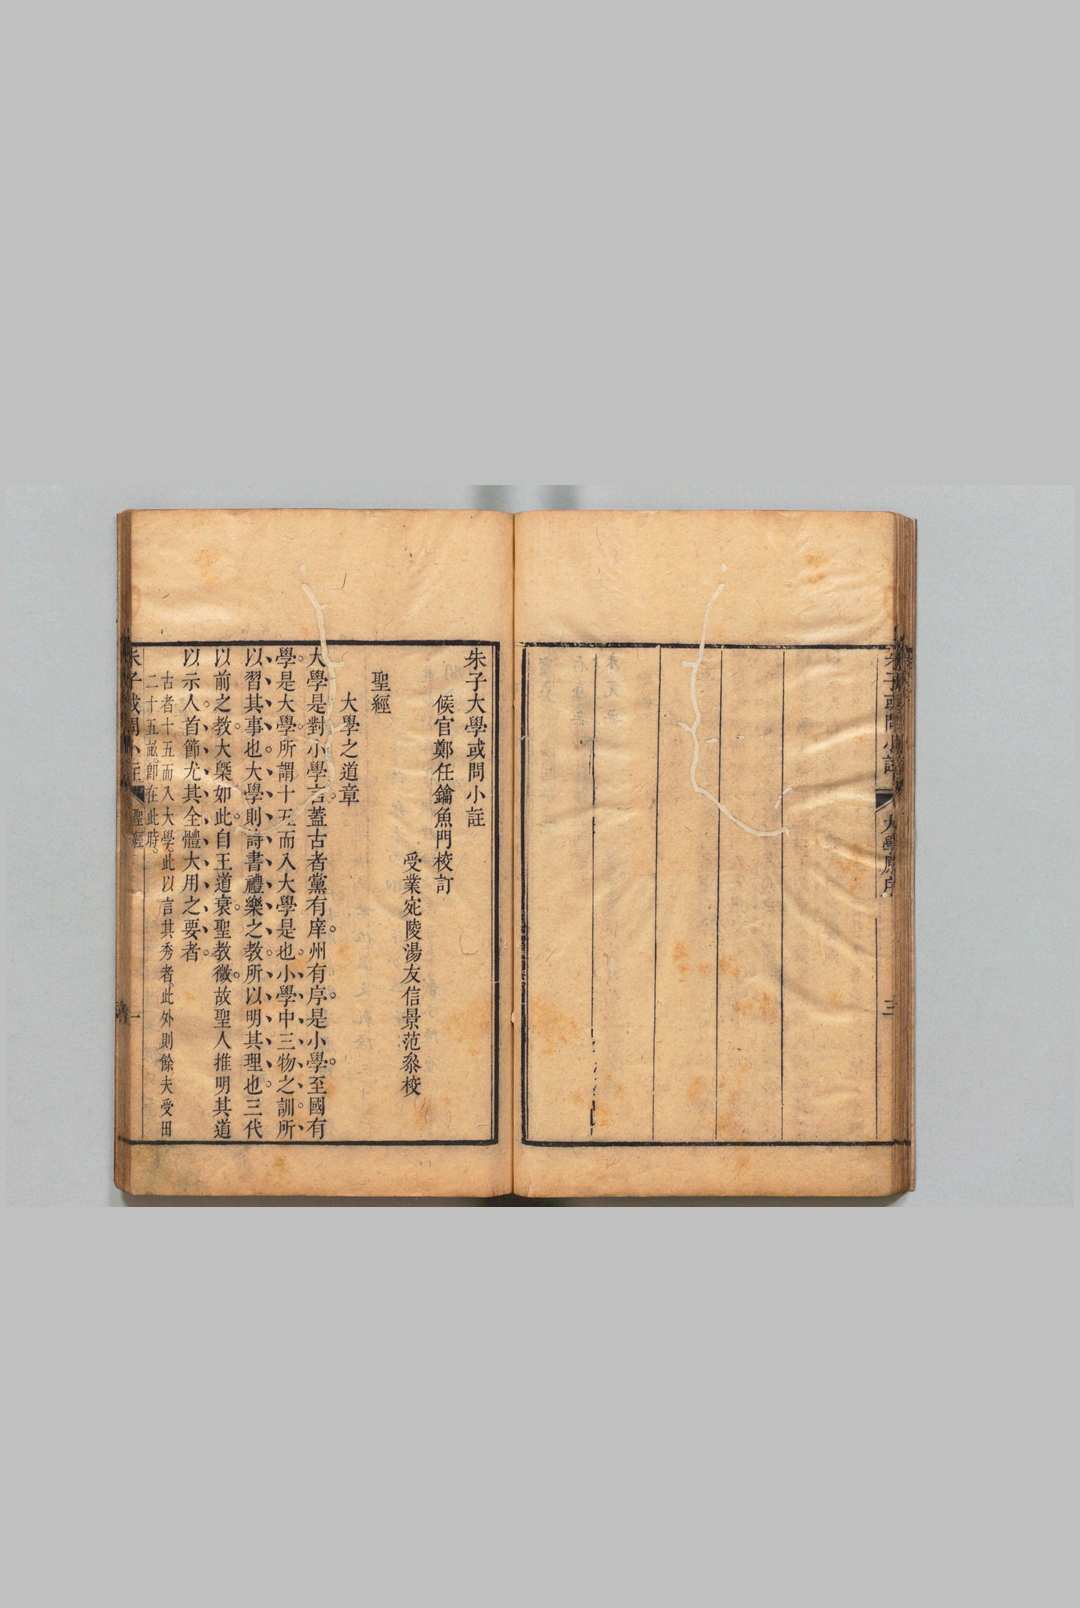 朱子或問小註
大學原序
三
朱子大學或問小註
候官鄭任鑰魚門校訂
受業宛陵湯友信景范叅校
聖經
大學之道章
大學是對小學言蓋古者黨有庠州有序是小學至國有
學是大學所謂十五而入大學是也小學中三物之訓所
以習其事也大學則詩書禮樂之教所以明其理也三代
以前之教大槩如此自王道衰聖教微故聖人推明其道
以示人首節尤其全體大用之要者
古者十五而入大學此以言其秀者此外則餘夫受田
二十五畝卽在此時
朱子或問小註
聖經
一